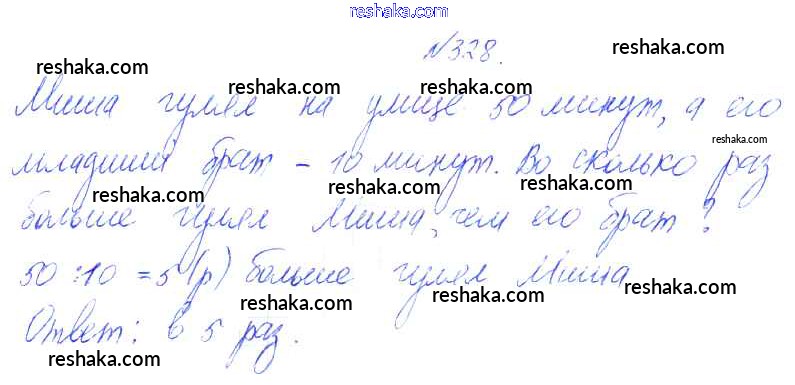 reshaka.com
№328.
reshaka.com reshaka.com
reshaka.com reshaka.com
Миша гулял на улице 50 минут, а его
reshaka.com
младший брат – 10 минут. Во сколько раз
reshaka.com reshaka.com reshaka.com
больше гулял Миша, чем его брат?
reshaka.com
50 : 10 = 5 (р) больше гулял Миша
reshaka.com reshaka.com reshaka.com
Ответ: в 5 раз.
reshaka.com reshaka.com reshaka.com